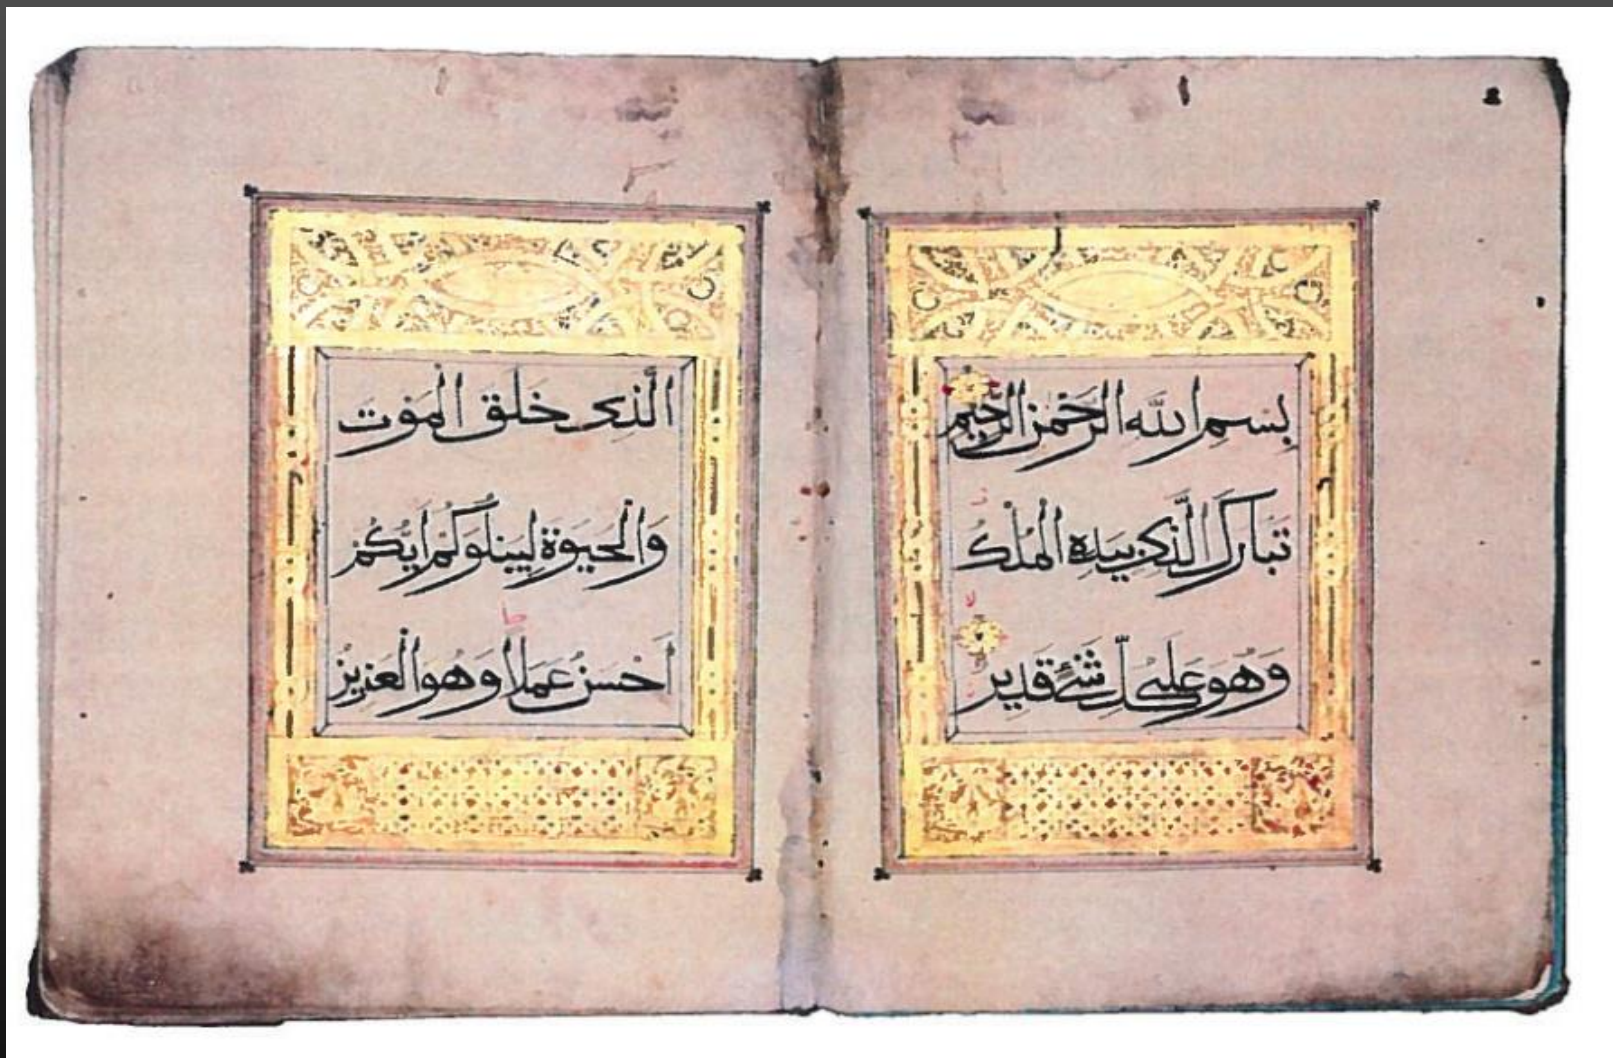 بِسْمِ اللَّهِ الرَّحْمٰنِ الرَّحِيمِ
تَبَارَكَ الَّذِي بِيَدِهِ الْمُلْكُ
لا
وَهُوَ عَلَى كُلِّ شَيْءٍ قَدِيرٌ
الَّذِي خَلَقَ الْمَوْتَ
وَالْحَيَوةَ لِيَبْلُوَكُمْ أَيُّكُمْ
ط
أَحْسَنُ عَمَلًا وَهُوَ الْعَزِيزُ